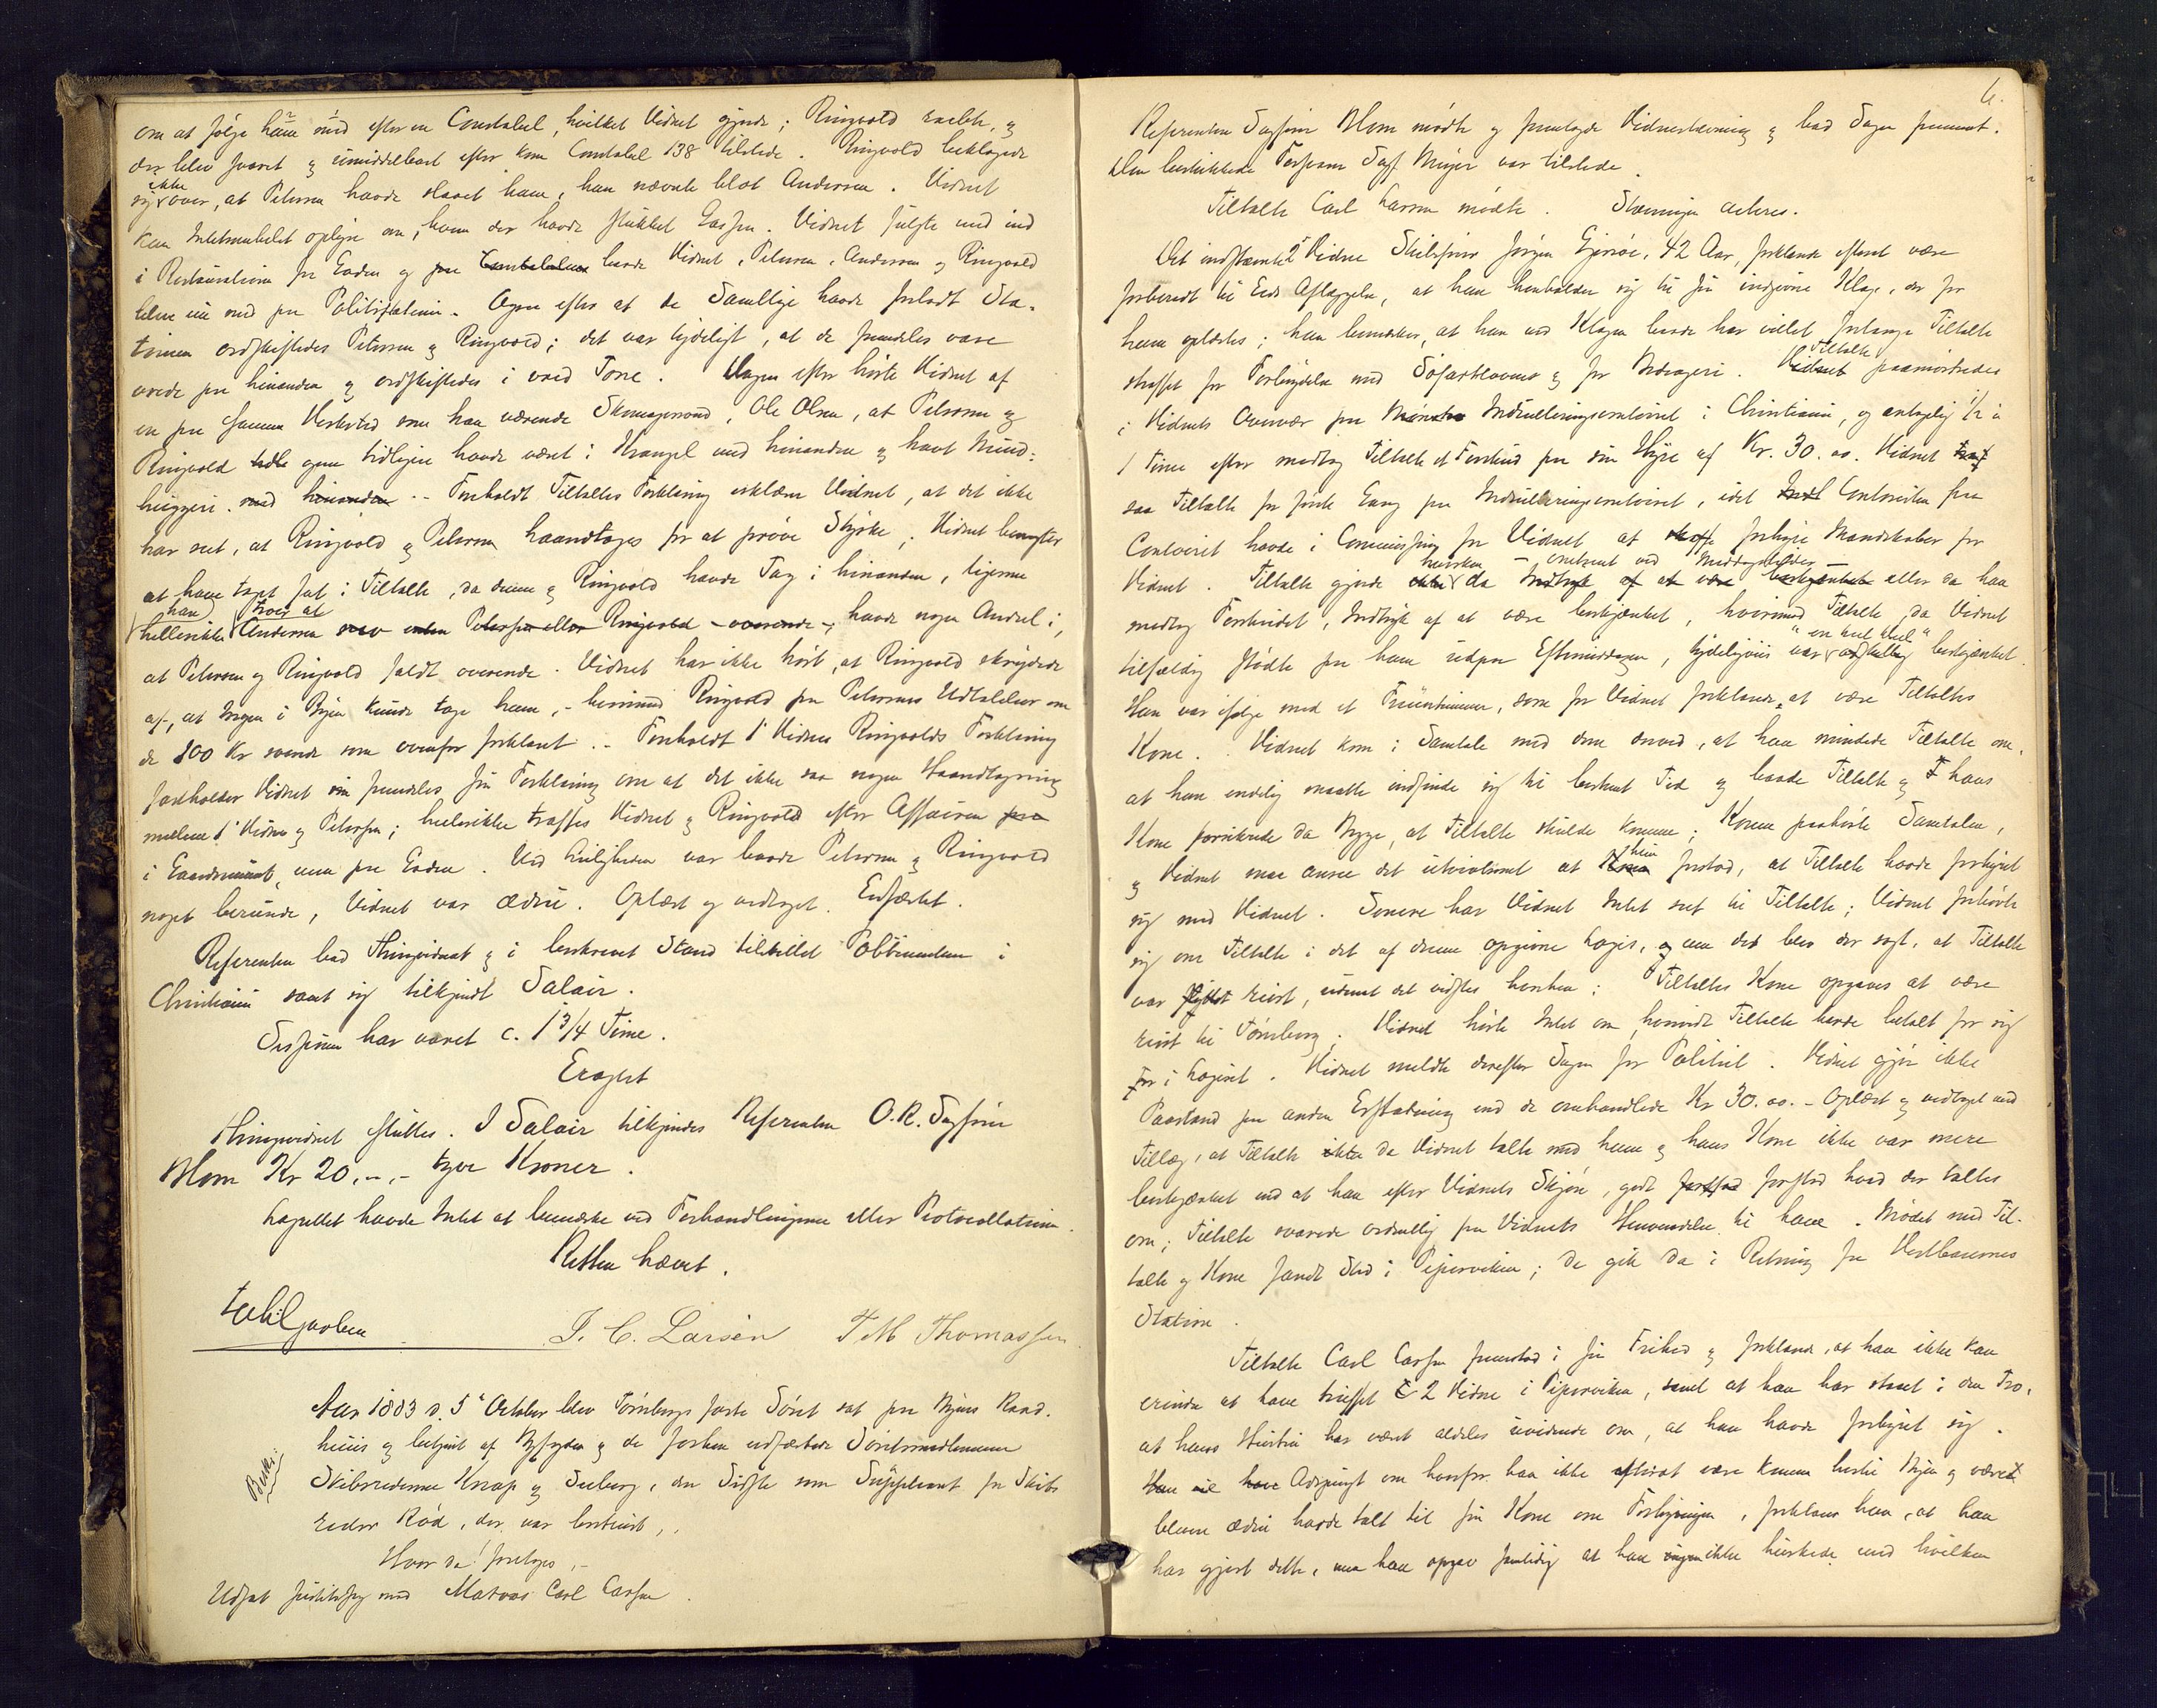 om at følge ham med efter en Constabel, hvilket Vidnet gjorde; Ringvold raabte, og
der blev svaret og umiddelbart efter kom Constabel 138 tilstede. Ringvold beklagede
sig ikke over, at Petersen havde slaaet ham, han nævnte blot Andersen. Vidnet
kan Intetsomhelst oplyse om, hvem der havde slukket Gassen. Vidnet fulgte med ind
i Restaurationen fra Gaden og baade Vidnet, Petersen, Andersen og Ringvold
blev nu med paa Politistationen. Ogsaa efter at de Samtlige havde forladt Sta-
tionen ordskiftedes Petersen og Ringvold; det var tydeligt, at de fremdeles vare
vrede paa hinanden og ordskiftedes i vred Tone. Dagen efter hørte Vidnet af
en paa samme Værksted som han værende Skomagersvend, Ole Olsen, at Petersen og
Ringvold ogsaa tidligere havde været i Krangel med hinanden og havt Mund-
huggeri med hinanden. - Foreholdt Tiltaltes Forklaring erklærer Vidnet, at det ikke
har seet, at Ringvold og Petersen haandtoges for at prøve Styrke. Vidnet benægter
at have taget fat i Tiltalte, da denne og Ringvold havde Tag i hinanden, ligesom
han hellerikke troer at Andersen havde nogen Andeel i,
at Petersen og Ringvold faldt overende. Vidnet har ikke hørt, at Ringvold skrydede
af, at Ingen i Byen kunde tage ham, - hvorimod Ringvold paa Petersens Udtalelser om
de 800 Kr svarede som ovenfor forklaret. - Foreholdt 1' Vidnes Ringvolds Forklaring
fastholder Vidnet fremdeles sin Forklaring om at det ikke saa nogen Haandtagning
mellem 1' Vidne og Petersen; hellerikke traffes Vidnet og Ringvold efter Affairen
i Gaardsrummet, men paa Gaden. Ved Leiligheden var baade Petersen og Ringvold
noget berusede, Vidnet var ædru. Oplæst og vedtaget. Edfæstet.
Referenten bad Thingsvidnet og i beskreven Stand tilstillet Øvrigheden i
Christiania samt sig tilkjendt Salair.
Sessionen har varet c. 1 3/4 Time.
Eragtet
Thingsvidnet sluttes. I Salair tilkjendes Referenten O.R. Sagfører
Blom Kr 20,-,- tyve Kroner.
Lagrettet havde Intet at bemærke ved Forhandlingerne eller Protocollationen.
Retten hævet.
J. C. Larsen T M Thomassen
Aar 1883 d. 5' October blev Tønsbergs faste Søret sat paa Byens Raad-
huus og betjent af Byfogden og de forhen edfæstede Søretsmedlemmer
Besk:
Skibsrederne Knap og Seeberg, den Sidste som Suppleant for Skibs
reder Rød, der var bortreist,
Hvor da! foretoges, -
Udsat Justitssag mod Matros Carl Larsen.
6.
Referenten Sagfører Blom mødte og fremlagde Vidnestævning og bad Sagen fremmet.
Den beskikkede Forsvarer Sagf. Meyer var tilstede.
Tiltalte Carl Larsen mødte. Stævningen acteres.
Det indstævnte 2' Vidne Skibsfører Jørgen Gjersøe, 42 Aar, forklarede efterat være
forberedt til Eeds Aflæggelse, at han henholder sig til sin indgivne Klage, der for
ham oplæstes; han bemærker, at han ved Klagen baade har villet forlange Tiltalte
straffet for Forbrydelse mod Søfartsloven og for Bedrageri. Tiltalte paamønstredes
i Vidnets Overvær paa Indrulleringscontoiret i Christiania, og antagelig 1/2 à
1 Time efter modtog Tiltalte et Forskud paa sin Hyre af Kr. 30.oo. Vidnet
saa Tiltalte for første Gang paa Indrulleringscontoiret, idet Contoristen paa
Contoiret havde i Commission for Vidnet at forhyre Mandskaber for
Vidnet. Tiltalte gjorde hverken da - omtrent ved Middagstider - eller da han
modtog Forskudet, Indtryk af at være beskjænket, hvorimod Tiltalte, da Vidnet
tilfældig stødte paa ham udpaa Eftermiddagen, tydeligviis var "en heel Deel" beskjænket.
Han var ifølge med et Fruentimmer, som for Vidnet forklarede at være Tiltaltes
Kone. Vidnet kom i Samtale med dem derved, at han mindede Tiltalte om,
at han endelig maatte indfinde sig til bestemt Tid og baade Tiltalte og hans
Kone forsikrede da begge, at Tiltalte skulde komme; Konen paahørte Samtalen,
og Vidnet maa ansee det utvivlsomt at hun forstod, at Tiltalte havde forhyret
sig med Vidnet. Senere har Vidnet Intet seet til Tiltalte; Vidnet forhørte
sig om Tiltalte i det af denne opgivne Logis, men der blev der sagt, at Tiltalte
var reist, uden at det vidstes hvorhen; Tiltaltes Kone opgaves at være
reist til Tønsberg. Vidnet hørte Intet om, hvorvidt Tiltalte havde betalt for sig
i Logiset. Vidnet meldte derefter Sagen for Politiet. Vidnet gjør ikke
Paastand paa anden Erstatning end de omhandlede Kr 30.oo. - Oplæst og vedtaget med
Tillæg, at Tiltalte da Vidnet talte med ham og hans Kone ikke var mere
beskjænket end at han efter Vidnets Skjøn, godt forstod hvad der taltes
om; Tiltalte svarede ordentlig paa Vidnets Henvendelse til ham. Mødet med Til-
talte og Kone fandt Sted i Pipervigen; de gik da i Retning fra Vestbanernes
Station.
Tiltalte Carl Larsen fremstod i sin Frihed og forklarede, at han ikke kan
erindre at have truffet 2 Vidne i Pipervigen, samt at han har staaet i den Tro,
at hans Hustru har været aldeles uvidende om, at han havde forhyret sig.
Adspurgt om hvorfor han ikke efterat være kommen hertil Byen og været
bleven ædru havde talt til sin Kone om Forhyringen, forklarer han, at han
har gjort dette, men han opgav samtidig at han ikke huskede med hvilken